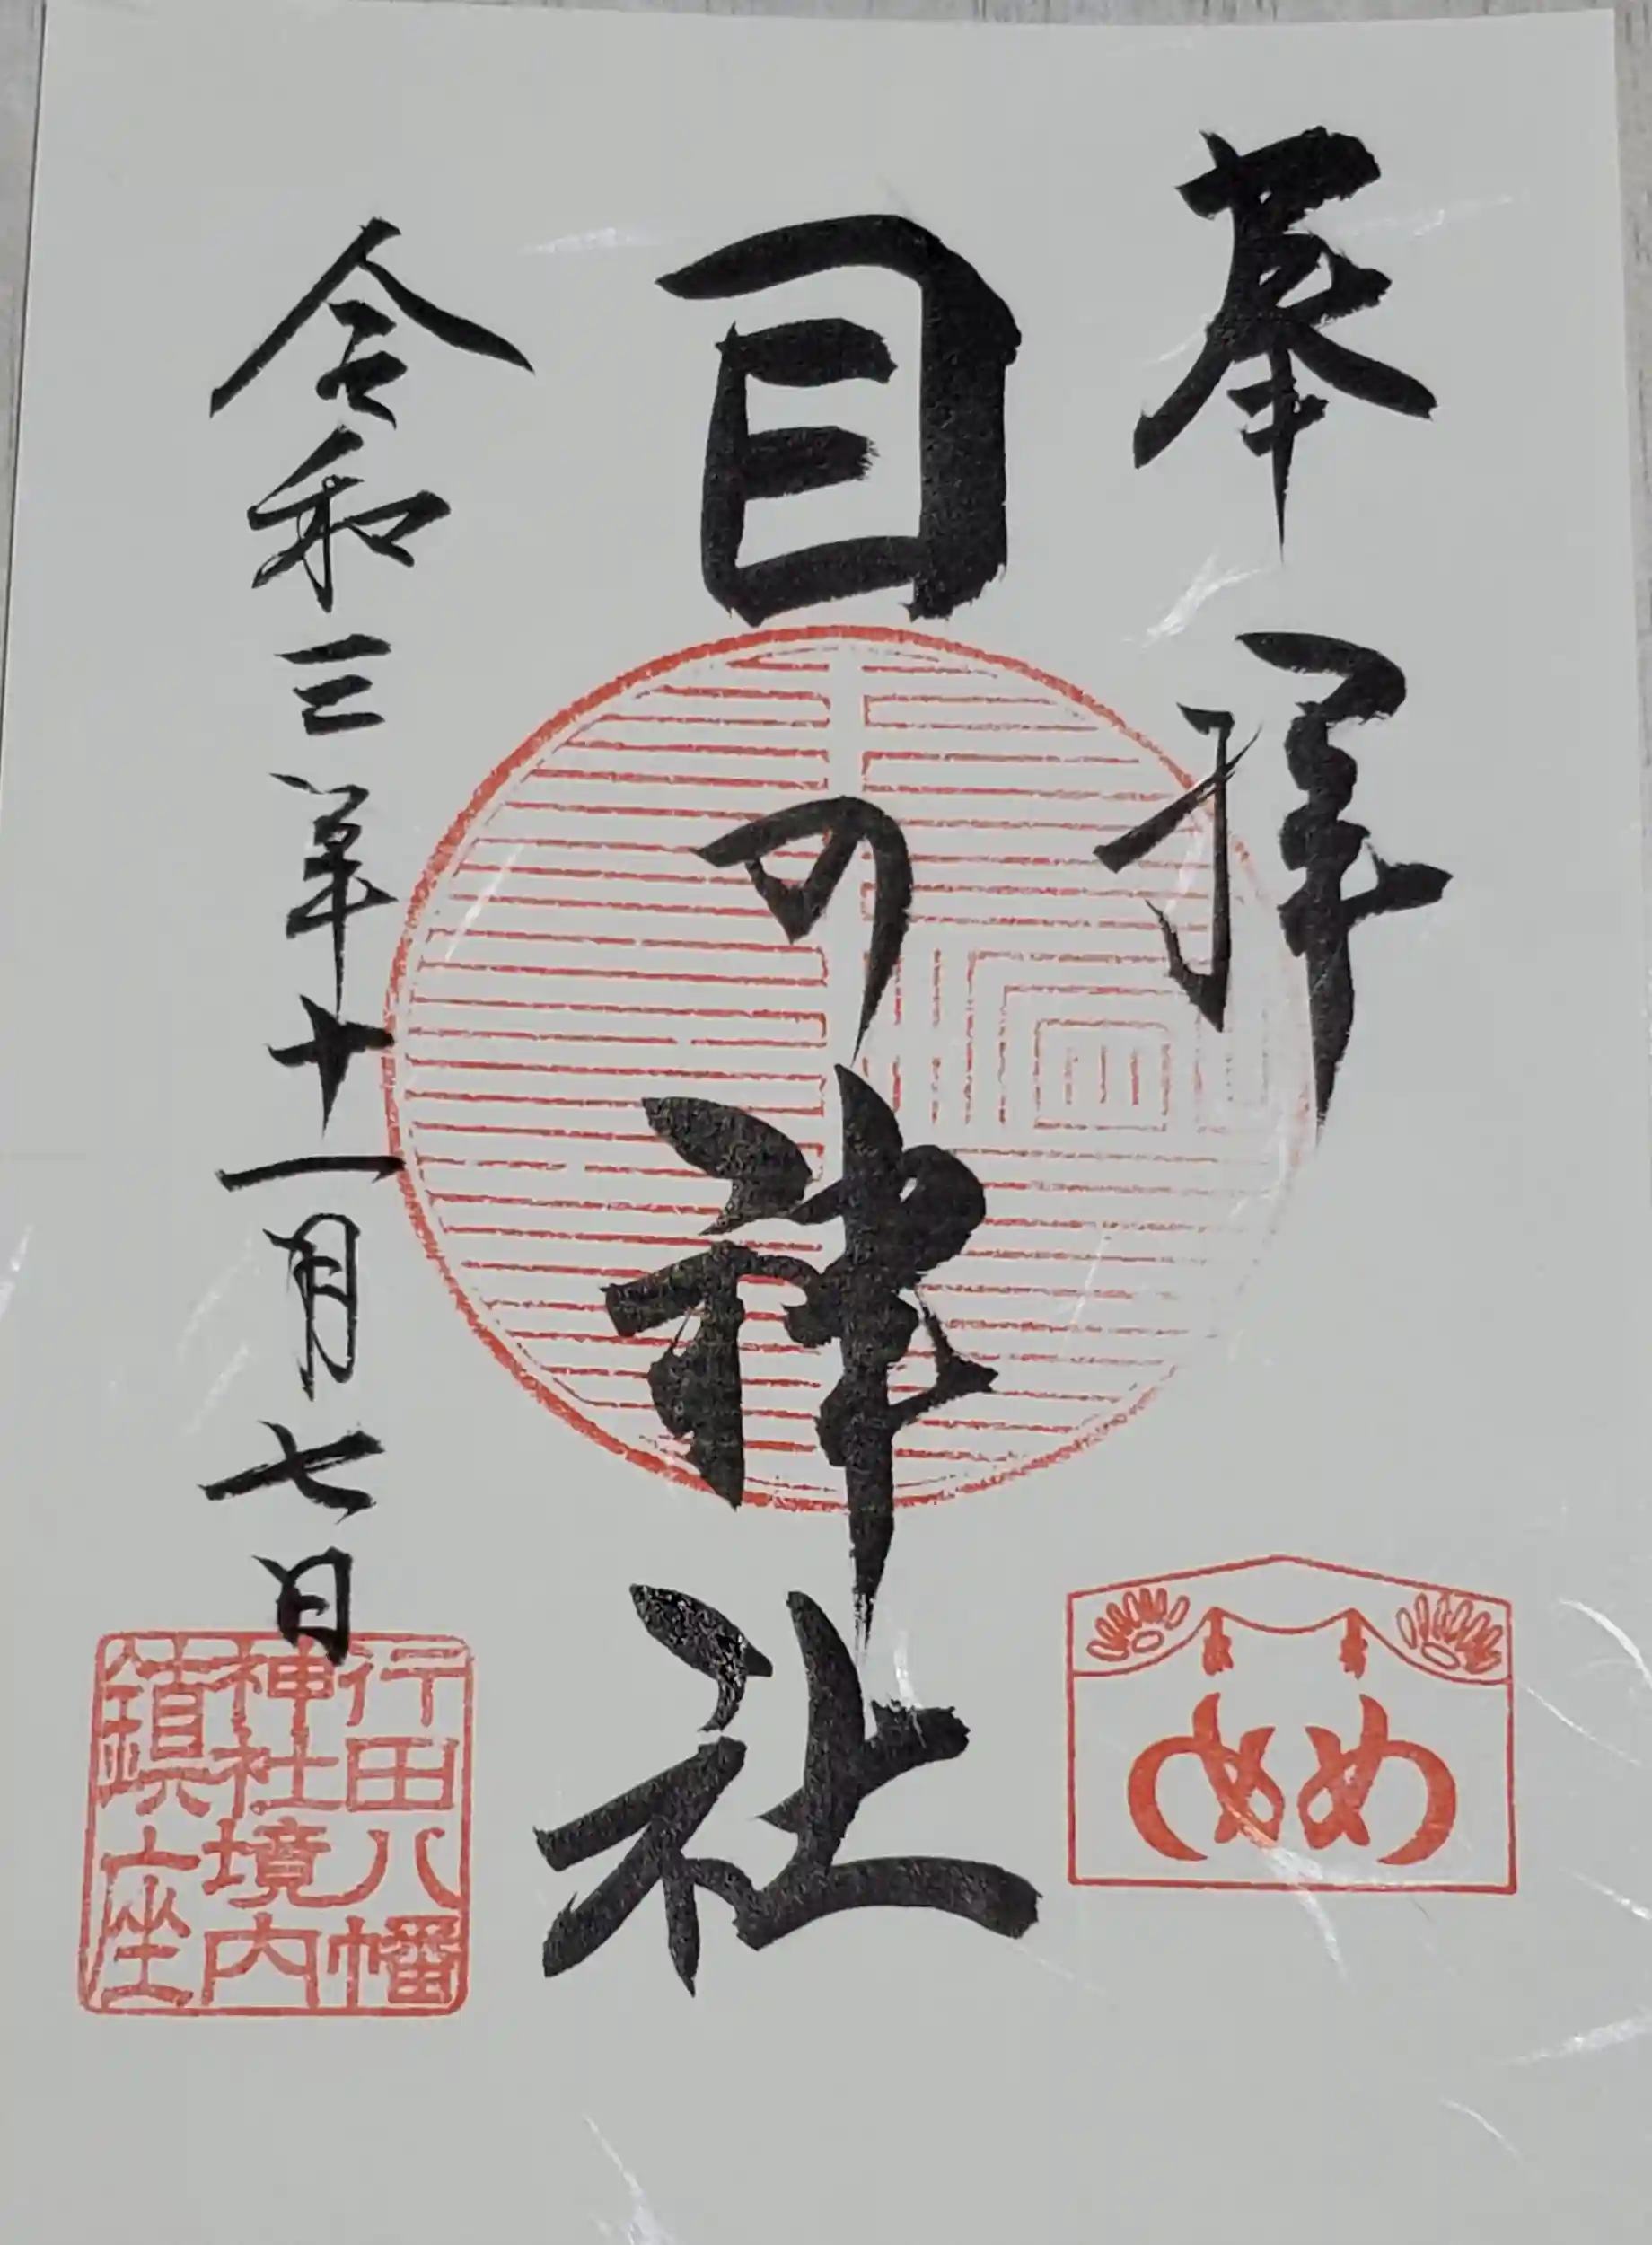 奉拝
目の神社
めめ
令和三年十一月七日
行田八幡
神社境内
鎮座